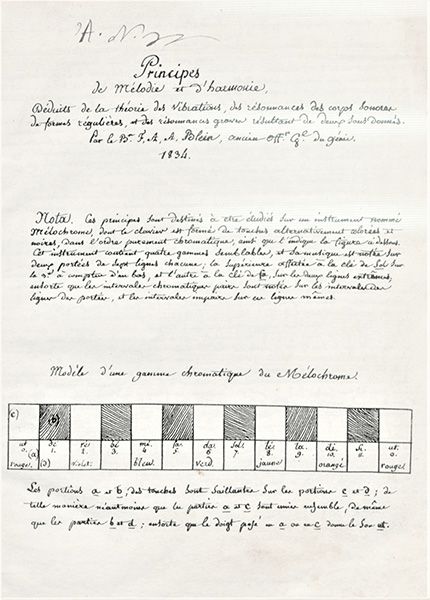 Principes
de Mélodie et d'harmonie,
Déduits de la théorie des vibrations, des résonnances des corps sonores
de formes régulières, et des résonances graves résultant de deux sons donnés.
Par le Bon. F. A. A. Blein, ancien offer. Gal. du génie.
1834.
Nota. Ces principes sont destinés à être étudiés sur un instrument nommé
Mélochrome, dont le clavier est formé de touches alternativement colorées et
noires, dans l'ordre purement chromatique, ainsi que l'indique la figure ci dessous.
Cet instrument contient quatre gammes semblables, et sa musique est notée sur
deux portées de sept lignes chacune; la supérieure affectée à la clé de Sol sur
la 3e. à compter d'en bas, et l'autre à la clé de fa, sur les deux lignes extrêmes,
ensorte que les intervales chromatiques pairs sont notés sur les intervales des
lignes des portées, et les intervales impairs sur ces lignes mêmes.
Modèle d'une gamme chromatique du Mélochrome.
(c) (b)
ut dé ré bé mi fa da sol lé la dê si ut
0. 1. 2. 3. 4. 5. 6. 7. 8. 9. 10. 11. 0.
(a) (d)
rouge. violet. bleu. verd. jaune orangé rouge.
Les portions a et b, des touches sont saillantes sur les portions c et d; de
telle manière néantmoins que les parties a et c sont unies ensemble, de même
que les parties b et d; ensorte que le doigt posé en a ou en c donne le son ut.